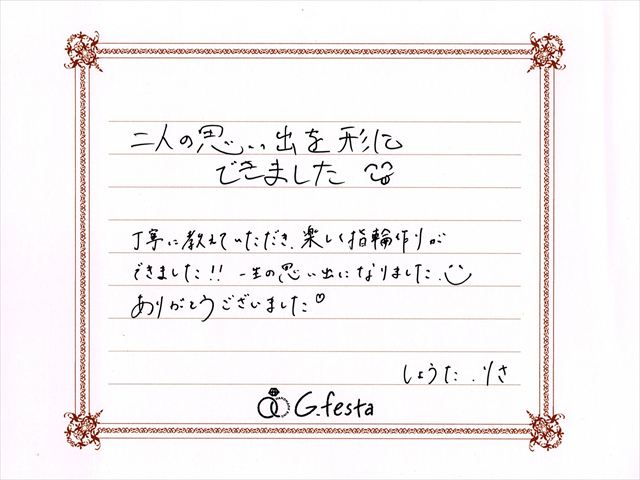 二人の思い出を形に
できました
丁寧に教えていただき、楽しく指輪作りが
できました!! 一生の思い出になりました。
ありがとうございました♡
しょうた . りさ
G.festa